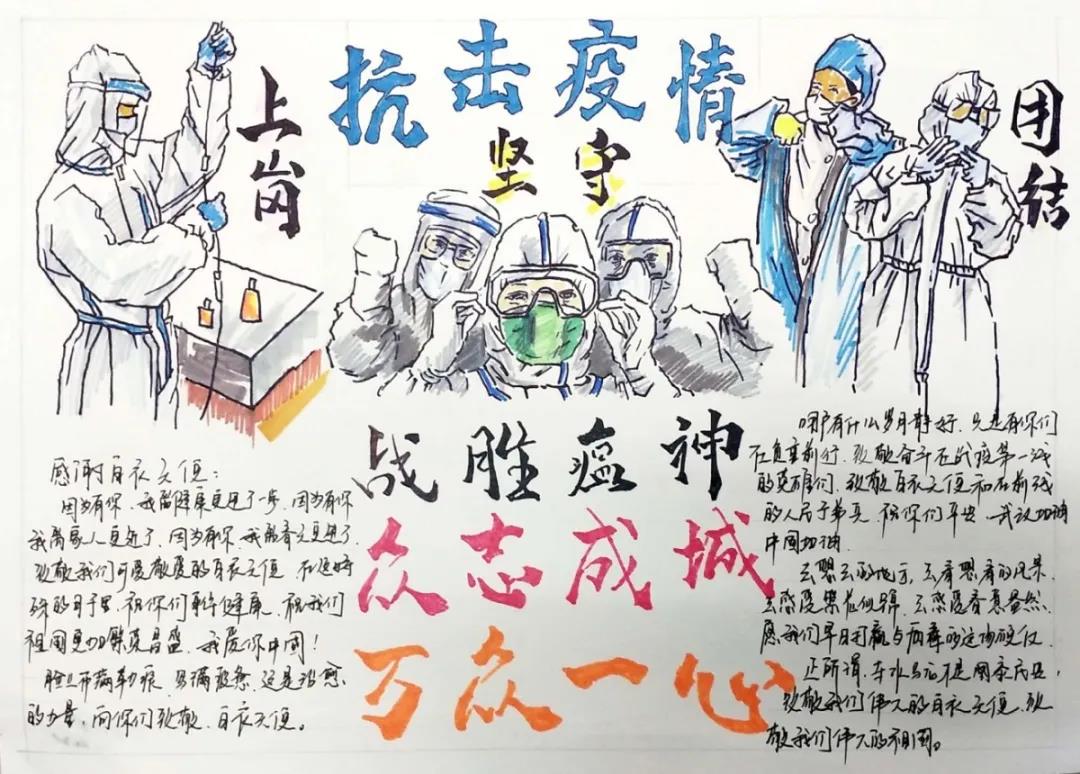 抗击疫情
上岗
坚守
团结
战胜瘟神
众志成城
万众一心
感谢白衣天使：
因为有你，我离健康更近了一步，因为有你
我离家人更近了，因为有你，我离春天更近了
致敬我们可爱敬爱的白衣天使，在这特
殊的日子里，祝你们事诸健康，祝我们
祖国更加繁荣昌盛，我爱你中国！
脸上布满勒痕，另满疲惫，这是治愈
的力量，向你们致敬，白衣天使。
哪有什么岁月静好，只是有你们
在负重前行，致敬奋斗在战疫第一线
的英雄们，致敬白衣天使和在前线
的人民子弟兵，祝你们平安，武汉加油
中国加油。
去想去的地方，去看想看的风景，
去感受繁花似锦，去感受春意盎然
愿我们早日打赢与病毒的这场硬仗
正所谓，车水马龙是国泰民安，
致敬我们伟大的白衣天使，致
敬我们伟大的祖国。